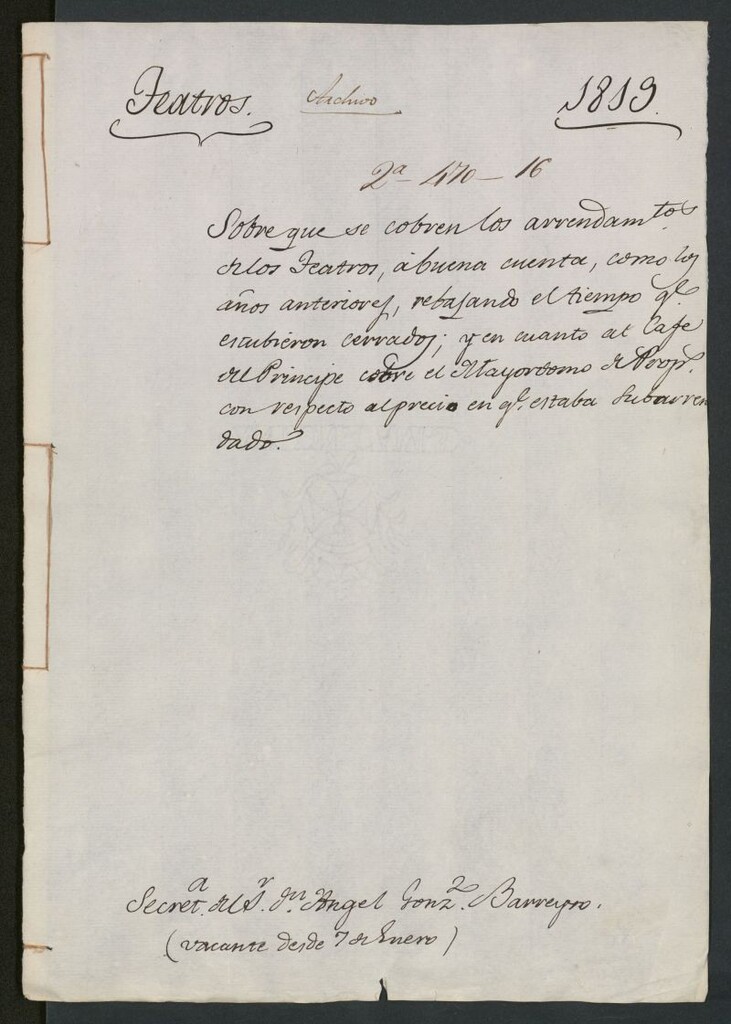 Teatros. Archivo 1819.
2ª 470-16
Sobre que se cobren los arrendam.tos
de los Teatros, á buena cuenta, como los
años anteriores, rebajando el tiempo q.e
estubieron cerrados; y en cuanto al Cafe
del Principe cobre el Mayordomo de Prop.s
con respecto al precio en q.e estaba subarren
dado.
Secret.a del S.r D.n Angel Gonz.z Barreyro.
(vacante desde 7 de Enero)